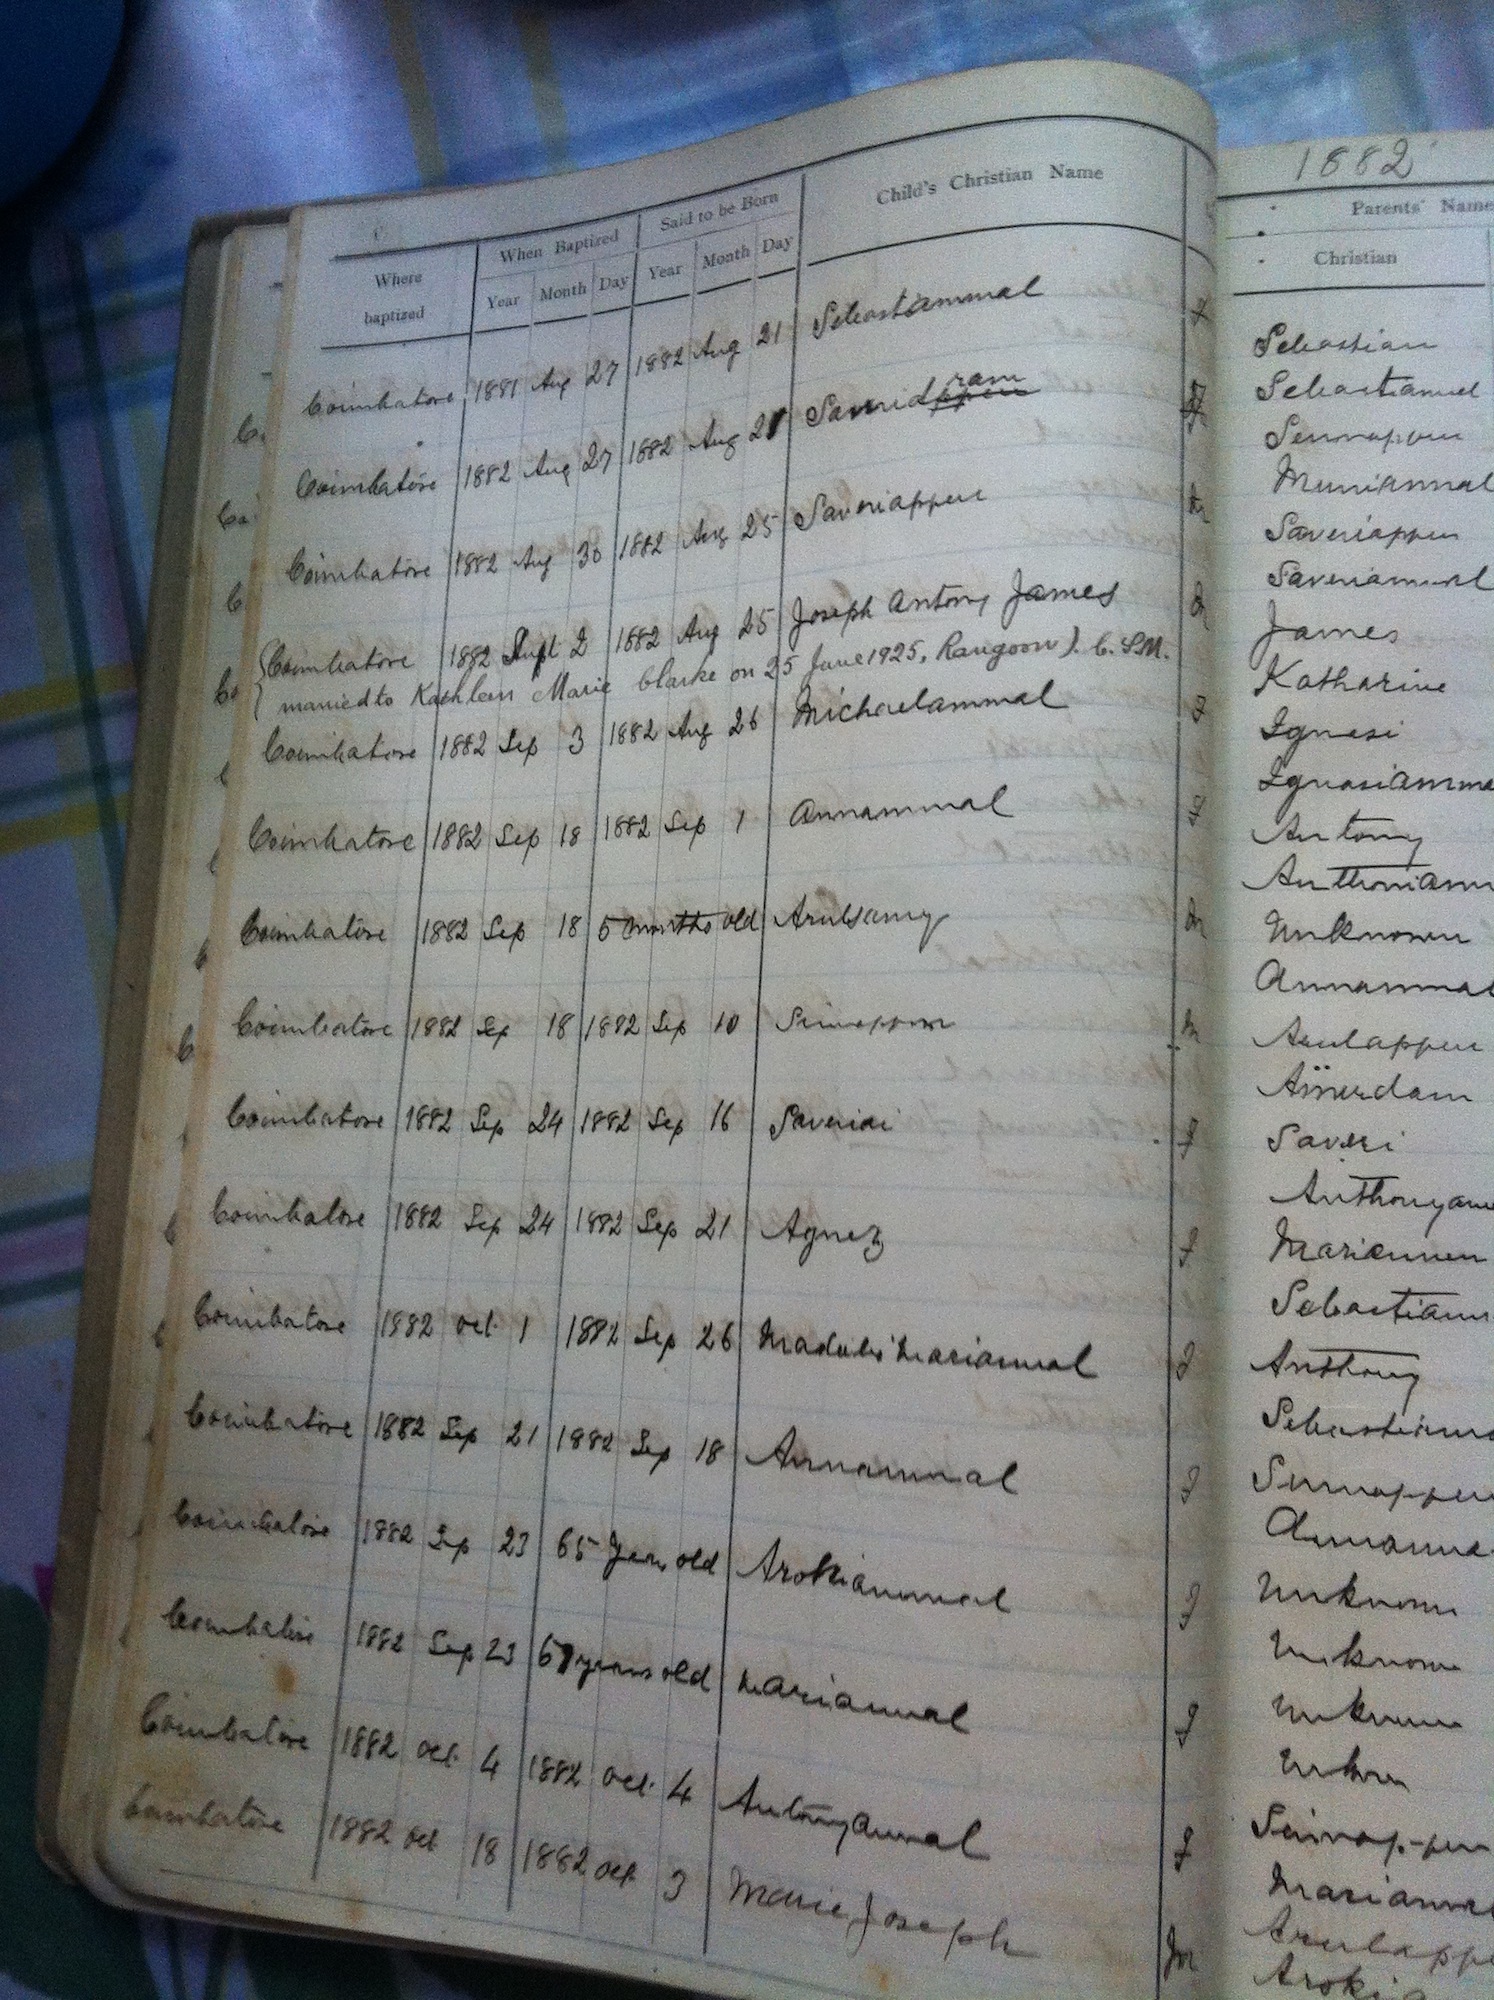 1882
Where baptized
When Baptized
Year Month Day
Said to be Born
Year Month Day
Child's Christian Name
Parents' Name
Christian
Coimbatore 1881 Aug 27 1882 Aug 21 Sebastiammal f
Coimbatore 1882 Aug 27 1882 Aug 21
ram
Coimbatore 1882 Aug 30 1882 Aug 25 Saveriappen m
Coimbatore 1882 Sept 2 1882 Aug 25 Joseph Antony James m
married to Kathleen Marie Clarke on 25 June 1925, Rangoon). C.SM.
Coimbatore 1882 Sep 3 1882 Aug 26 Michaelammal f
Coimbatore 1882 Sep 18 1882 Sep 1 Annammal f
Coimbatore 1882 Sep 18 5 months old Arulsamy m
Coimbatore 1882 Sep 18 1882 Sep 10 m
Coimbatore 1882 Sep 24 1882 Sep 16 Saveriai f
Coimbatore 1882 Sep 24 1882 Sep 21 Agnez f
Coimbatore 1882 Oct. 1 1882 Sep 26 Mariammal f
Coimbatore 1882 Sep 21 1882 Sep 18 Annammal f
Coimbatore 1882 Sep 23 65 Years old Arokiammal f
Coimbatore 1882 Sep 23 years old Mariammal f
Coimbatore 1882 Oct. 4 1882 Oct. 4 Antonyammal f
Coimbatore 1882 Oct 18 1882 Oct. 3 Marie Joseph m
Sebastian
Sebastiammal
Sinnappen
Muniammal
Saveriappen
Saveriammal
James
Katharine
Ignasi
Ignasiamma
Antony
Anthoniamm
Unknown
Annammal
Arulappen
Saveri
Anthonyamm
Sebastiamm
Anthony
Sebastiamm
Sinnappen
Annamma
Unknown
Unknown
Unknown
Sinnappen
Mariamm
Arulappe
Aroki